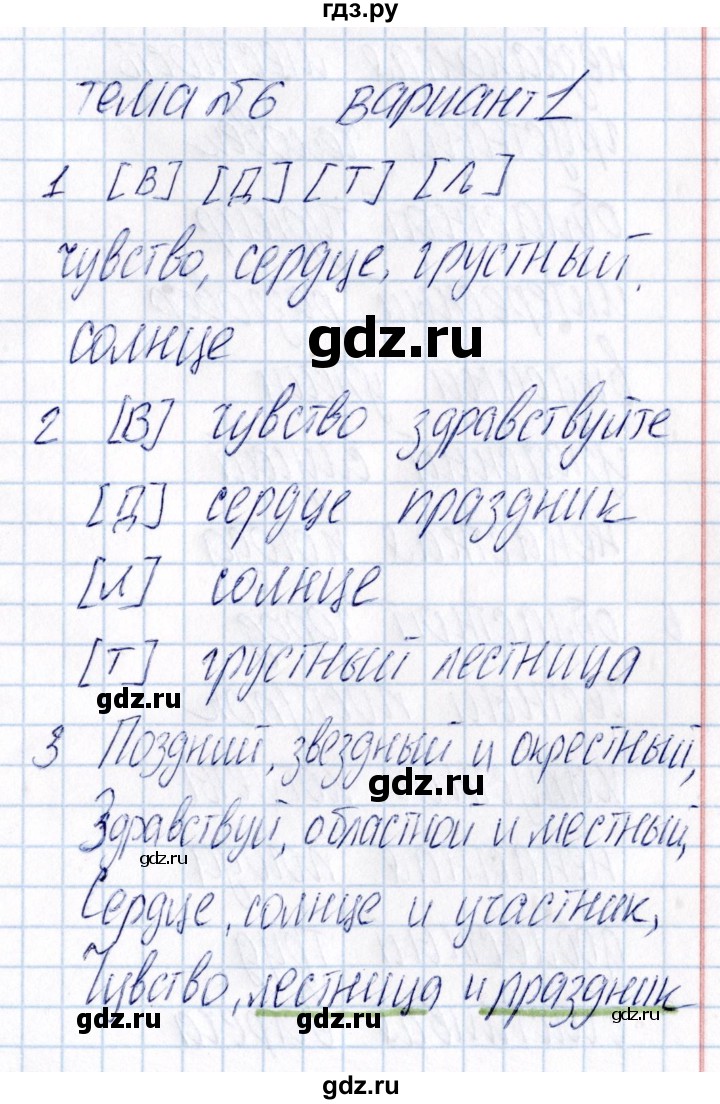 гдз.ру
тема №6 вариант 1
1 [в] [д] [т] [ль]
чувство, сердце, грустный,
солнце
gdz.ru
2 [в] чувство здравствуйте
[д] сердце праздник
[л] солнце
[т] грустный лестница
gdz.ru
3 Поздний, звездный и окрестный,
gdz.ru
Здравствуй, областной и местный,
gdz.ru
Сердце, солнце и участник,
Чувство, лестница и праздник
gdz.ru gdz.ru gdz.ru
gdz.ru